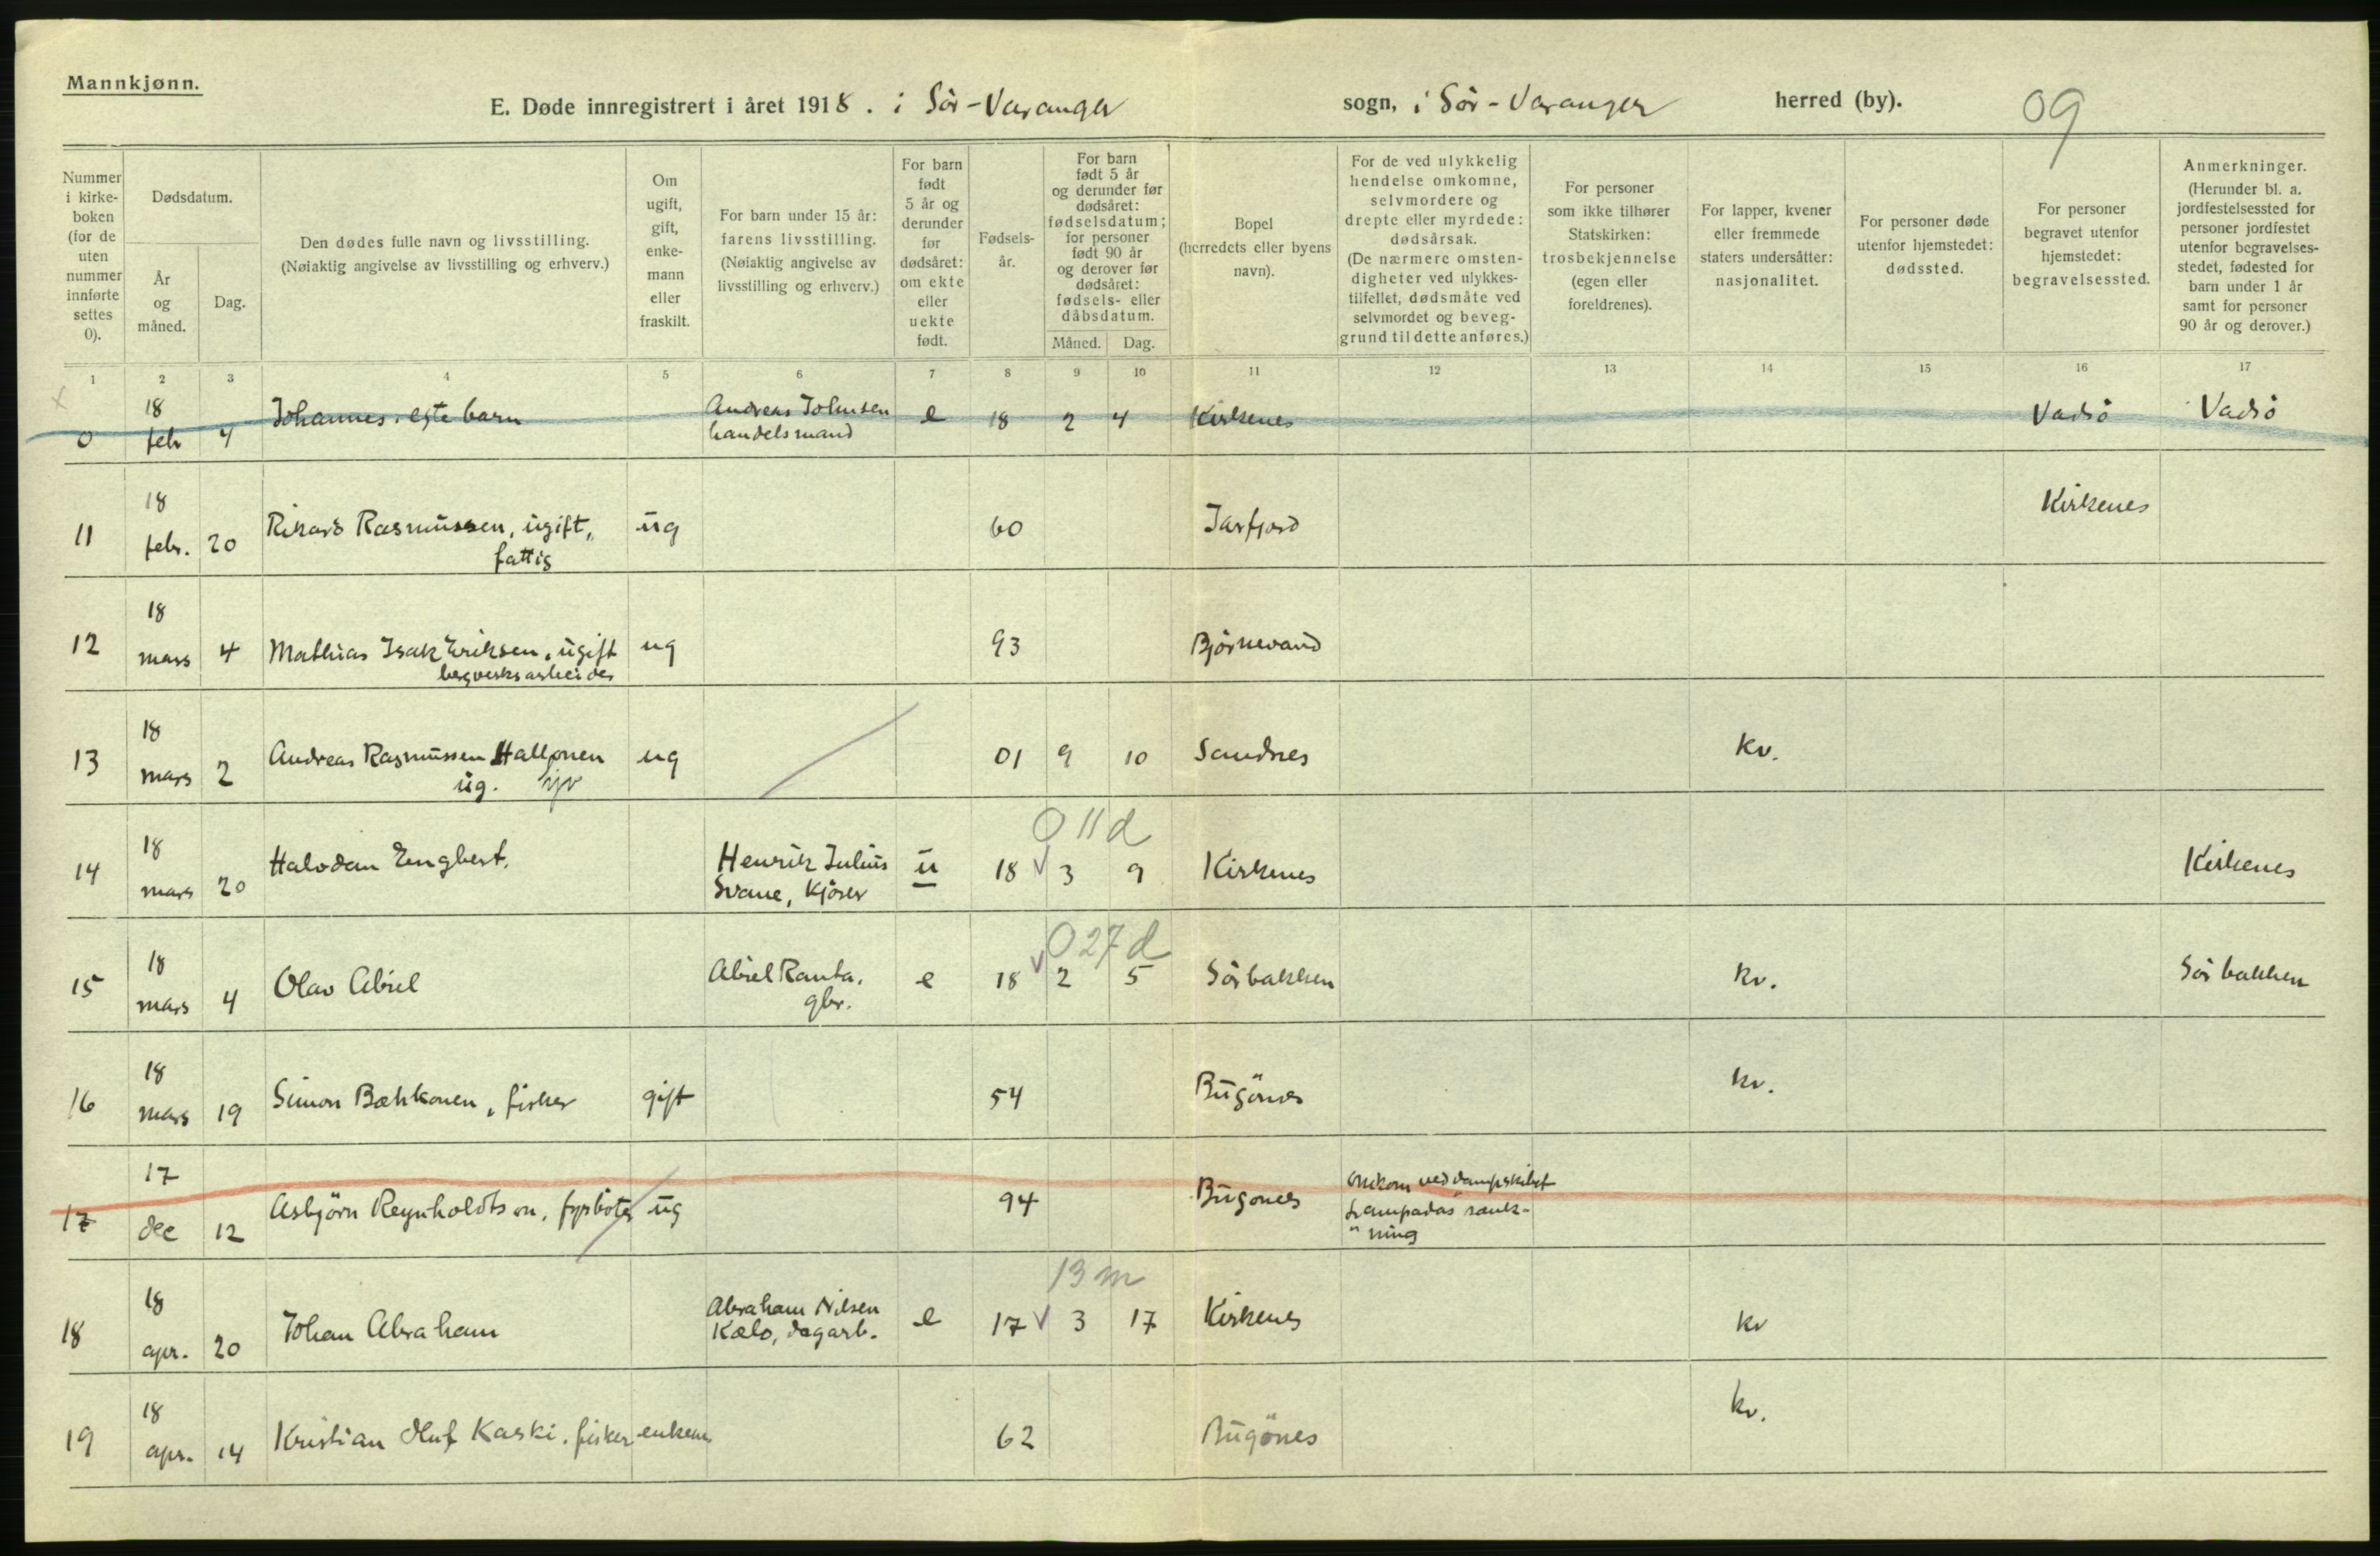 Mannkjønn.
E. Døde innregistrert i året 1918. i Sör-Varanger sogn, i Sör-Varanger herred (by).
09
Nummer i kirke-boken (for de uten nummer innførte settes 0).
Dødsdatum.
År og måned.
Dag.
Den dødes fulle navn og livsstilling.
(Nøiaktig angivelse av livsstilling og erhverv.)
Om ugift, gift, enke-mann eller fraskilt.
For barn under 15 år: farens livsstilling.
(Nøiaktig angivelse av livsstilling og erhverv.)
For barn født 5 år og derunder før dødsåret: om ekte eller uekte født.
Fødsels-år.
For barn født 5 år og derunder før dødsåret: fødselsdatum; for personer født 90 år og derover før dødsåret: fødsels- eller dåbsdatum.
Måned.
Dag.
Bopel
(herredets eller byens navn).
For de ved ulykkelig hendelse omkomne, selvmordere og drepte eller myrdede: dødsårsak.
(De nærmere omsten-digheter ved ulykkes-tilfellet, dødsmåte ved selvmordet og beveg-grund til dette anføres.)
For personer som ikke tilhører Statskirken: trosbekjennelse (egen eller foreldrenes).
For lapper, kvener eller fremmede staters undersåtter: nasjonalitet.
For personer døde utenfor hjemstedet: dødssted.
For personer begravet utenfor hjemstedet: begravelsessted.
Anmerkninger.
(Herunder bl. a. jordfestelsessted for personer jordfestet utenfor begravelses-stedet, fødested for barn under 1 år samt for personer 90 år og derover.)
1 2 3 4 5 6 7 8 9 10 11 12 13 14 15 16 17
0 18 feb 4 Johannes. egte barn Andreas Johnsen handelsmand e 18 2 4 Kirkenes Vadsö Vadsö
11 18 febr. 20 Rikard Rasmussen, ugift, fattig ug 60 Jarfjord Kirkenes
12 18 mars 4 Mathias Isak Eriksen, ugift bergverksarbeider ug 93 Björnevand
13 18 mars 2 Andreas Rasmussen Halponen ug. ug 01 9 10 Sandnes kv.
0 11 d
14 18 mars 20 Halvdan Engbert. Henrik Julius Svane, kjører u 18 3 9 Kirkenes Kirkenes
0 27 d
15 18 mars 4 Olav Abiel Abiel Ranta. gbr. e 18 2 5 Sörbakken kv. Sörbakken
16 18 mars 19 Simon Bæhkonen, fisker gift 54 Bugönes kv.
17 17 dec 12 Asbjörn Reynholdtsen, fyrböter ug 94 Bugönes omkom ved dampskibet sænk-ning
13 m
18 18 apr. 20 Johan Abraham Abraham Nilsen Kælo, dagarb. e 17 3 17 Kirkenes kv
19 18 apr. 14 Kristian Oluf Kaski. fisker enkem 62 Bugönes kv.